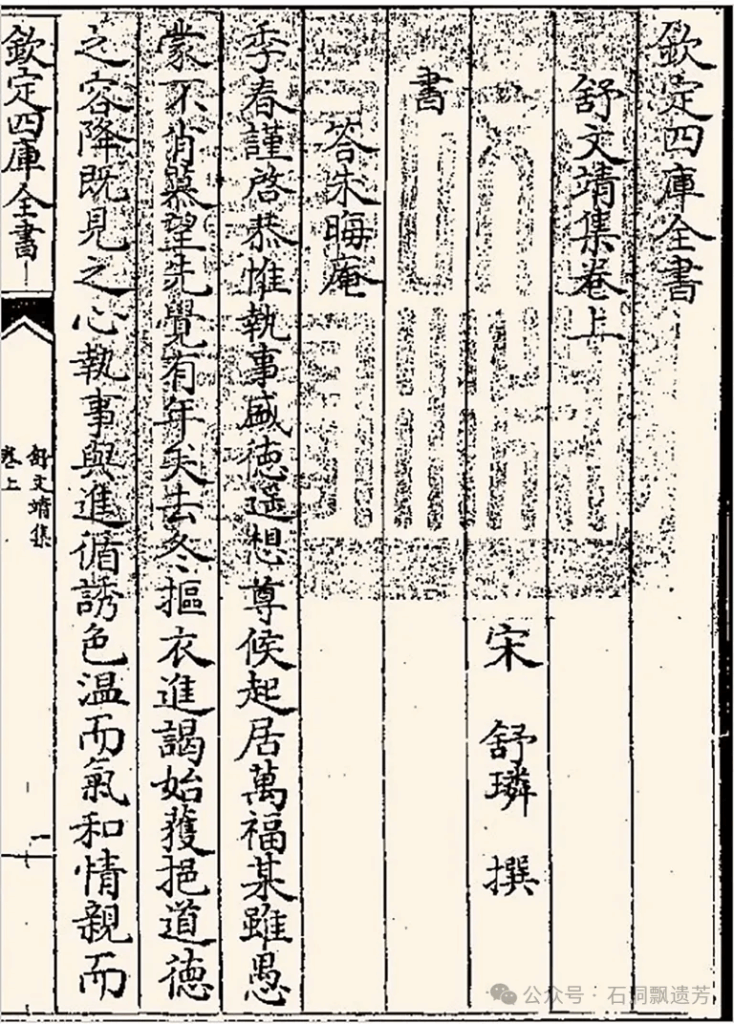 欽定四庫全書
舒文靖集卷上
宋 舒璘 撰
書
答朱晦庵
季春謹啓恭惟執事盛德遥想尊候起居萬福某雖愚
蒙不肖慕望先覺有年矣去冬摳衣進謁始獲挹道德
之容降既見之心執事與進循誘色温而氣和情親而
欽定四庫全書
舒文靖集
卷上
一
公众号·石洞飘遗芳